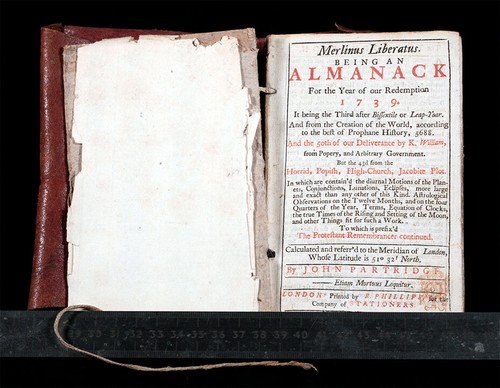 Merlinus Liberatus.
BEING AN
ALMANACK
For the Year of our Redemption
1739.
It being the Third after Bissextile or Leap-Year.
And from the Creation of the World, according
to the best of Prophane History, 5688.
And the 50th of our Deliverance by K. William,
from Popery, and Arbitrary Government.
But the 43d from the
Horrid, Popish, High-Church, Jacobite Plot.
In which are contain'd the diurnal Motions of the Plan-
ets, Conjunctions, Lunations, Eclipses, more large
and exact than any other of this Kind. Astrological
Observations on the Twelve Months, and on the four
Quarters of the Year, Terms, Equation of Clocks,
the true Times of the Rising and Setting of the Moon,
and other Things fit for such a Work.
To which is prefix'd
The Protestant Remembrancer continued.
Calculated and referr'd to the Meridian of London,
Whose Latitude is 51° 32' North.
By JOHN PARTRIDGE,
Etiam Mortuus Loquitur.
LONDON: Printed by R. PHILLIPS, for the
Company of STATIONERS.
32 33 34 35 36 37 38 39 40